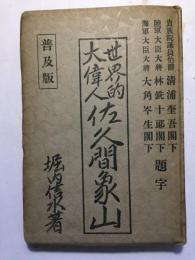 貴族院議員伯爵 清浦奎吾閣下
陸軍大臣大将 林銑十郎閣下 題字
海軍大臣大将 大角岑生閣下
世界的
大偉人 佐久間象山
普及版
堀内信水著